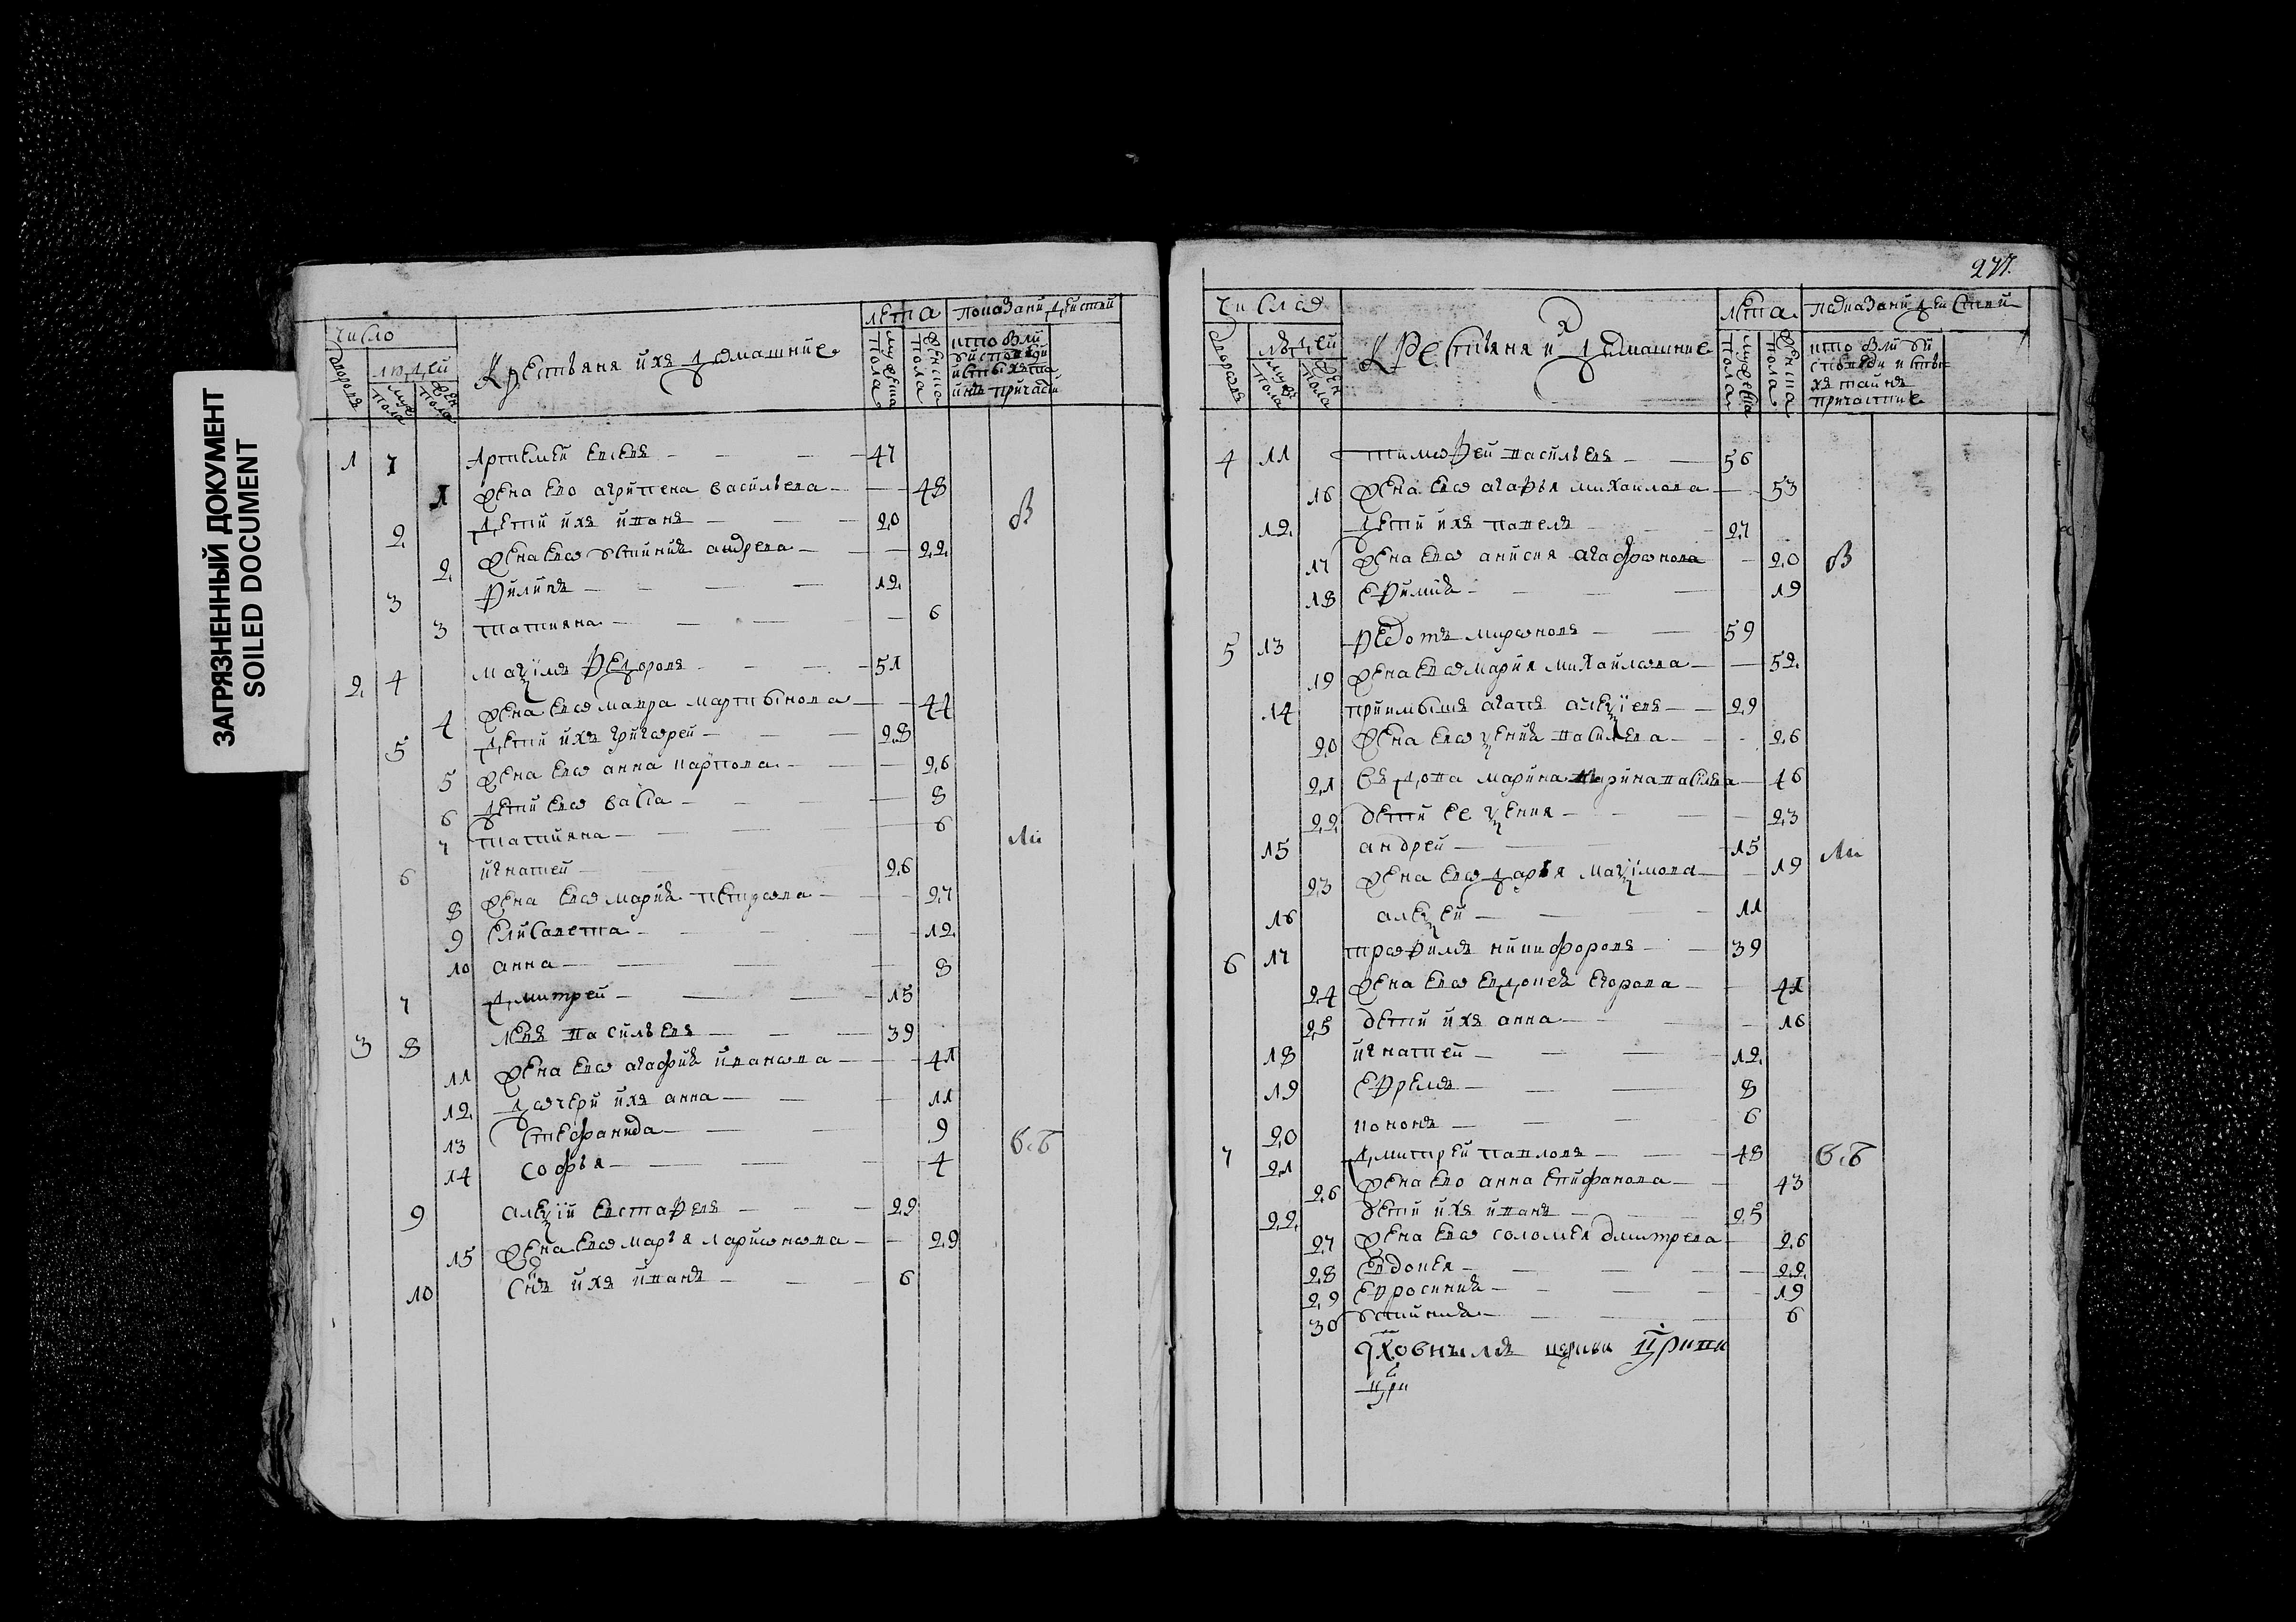 ЗАГРЯЗНЕННЫЙ ДОКУМЕНТ
SOILED DOCUMENT
число
дворовъ
людей
муж пола
жен пола
Крестьяня ихъ домашние
лета
мужеска пола
женска пола
показани действи
кто были
у исповеди
и святыхъ та
инъ причасти
1 1 Артемей евсевъ 47
1 жена ево агрипена васильева 48
2 дети ихъ иванъ 20
2 жена евѡ устиния андрева 22
3 филипъ 12
3 татияна 6
2 4 маѯімъ федоровъ 51
4 жена евѡ мавра мартынова 44
5 дети ихъ григѡреи 28
5 жена евѡ анна карпова 26
6 дети евѡ васса 8
7 татияна 6
6 игнатеи 26
8 жена евѡ мария петрѡва 27
9 елисавета 12
10 анна 8
7 дмитреи 15
3 8 левъ васильевъ 39
11 жена евѡ агафия иванѡва 41
12 дѡчери ихъ анна 11
13 стефанида 9
14 софья 4
9 алеѯіи евстафевъ 29
15 жена евѡ марья лариѡнѡва 29
10 снъ ихъ иванъ 6
В
ли
б б
277
число
дворовъ
людей
муж пола
жен пола
Крестьяня и х домашние
лета
мужеска пола
женска пола
показани действи
кто были у
исповеди и святы
хъ таинъ
причастие
4 11 тимѡфеи васильевъ 56
16 жена евѡ агафья михаилова 53
12 дети ихъ павелъ 27
17 жена евѡ анисия агафѡнова 20
18 ефимия 19
5 13 федотъ мирѡновъ 59
19 жена евѡ мария михаилѡва 52
14 приимышъ агапъ алеѯіевъ 29
20 жена евѡ ѯения василева 26
21 вдова марина василева 46
22 дети ее ѯения 23
15 андреи 15
23 жена евѡ дарья маѯімова 19
16 алеѯеи 11
6 17 трѡфимъ никифоровъ 39
24 жена евѡ евдокея егорова 41
25 дети ихъ анна 16
18 игнатеи 12
19 ефремъ 8
20 кононъ 6
7 21 дмитреи павловъ 48
26 жена ево анна епифанова 43
22 дети ихъ иванъ 25
27 жена евѡ соломея дмитрева 26
28 евдокея 22
29 ефросиния 19
30 устиния 6
В
ли
б б